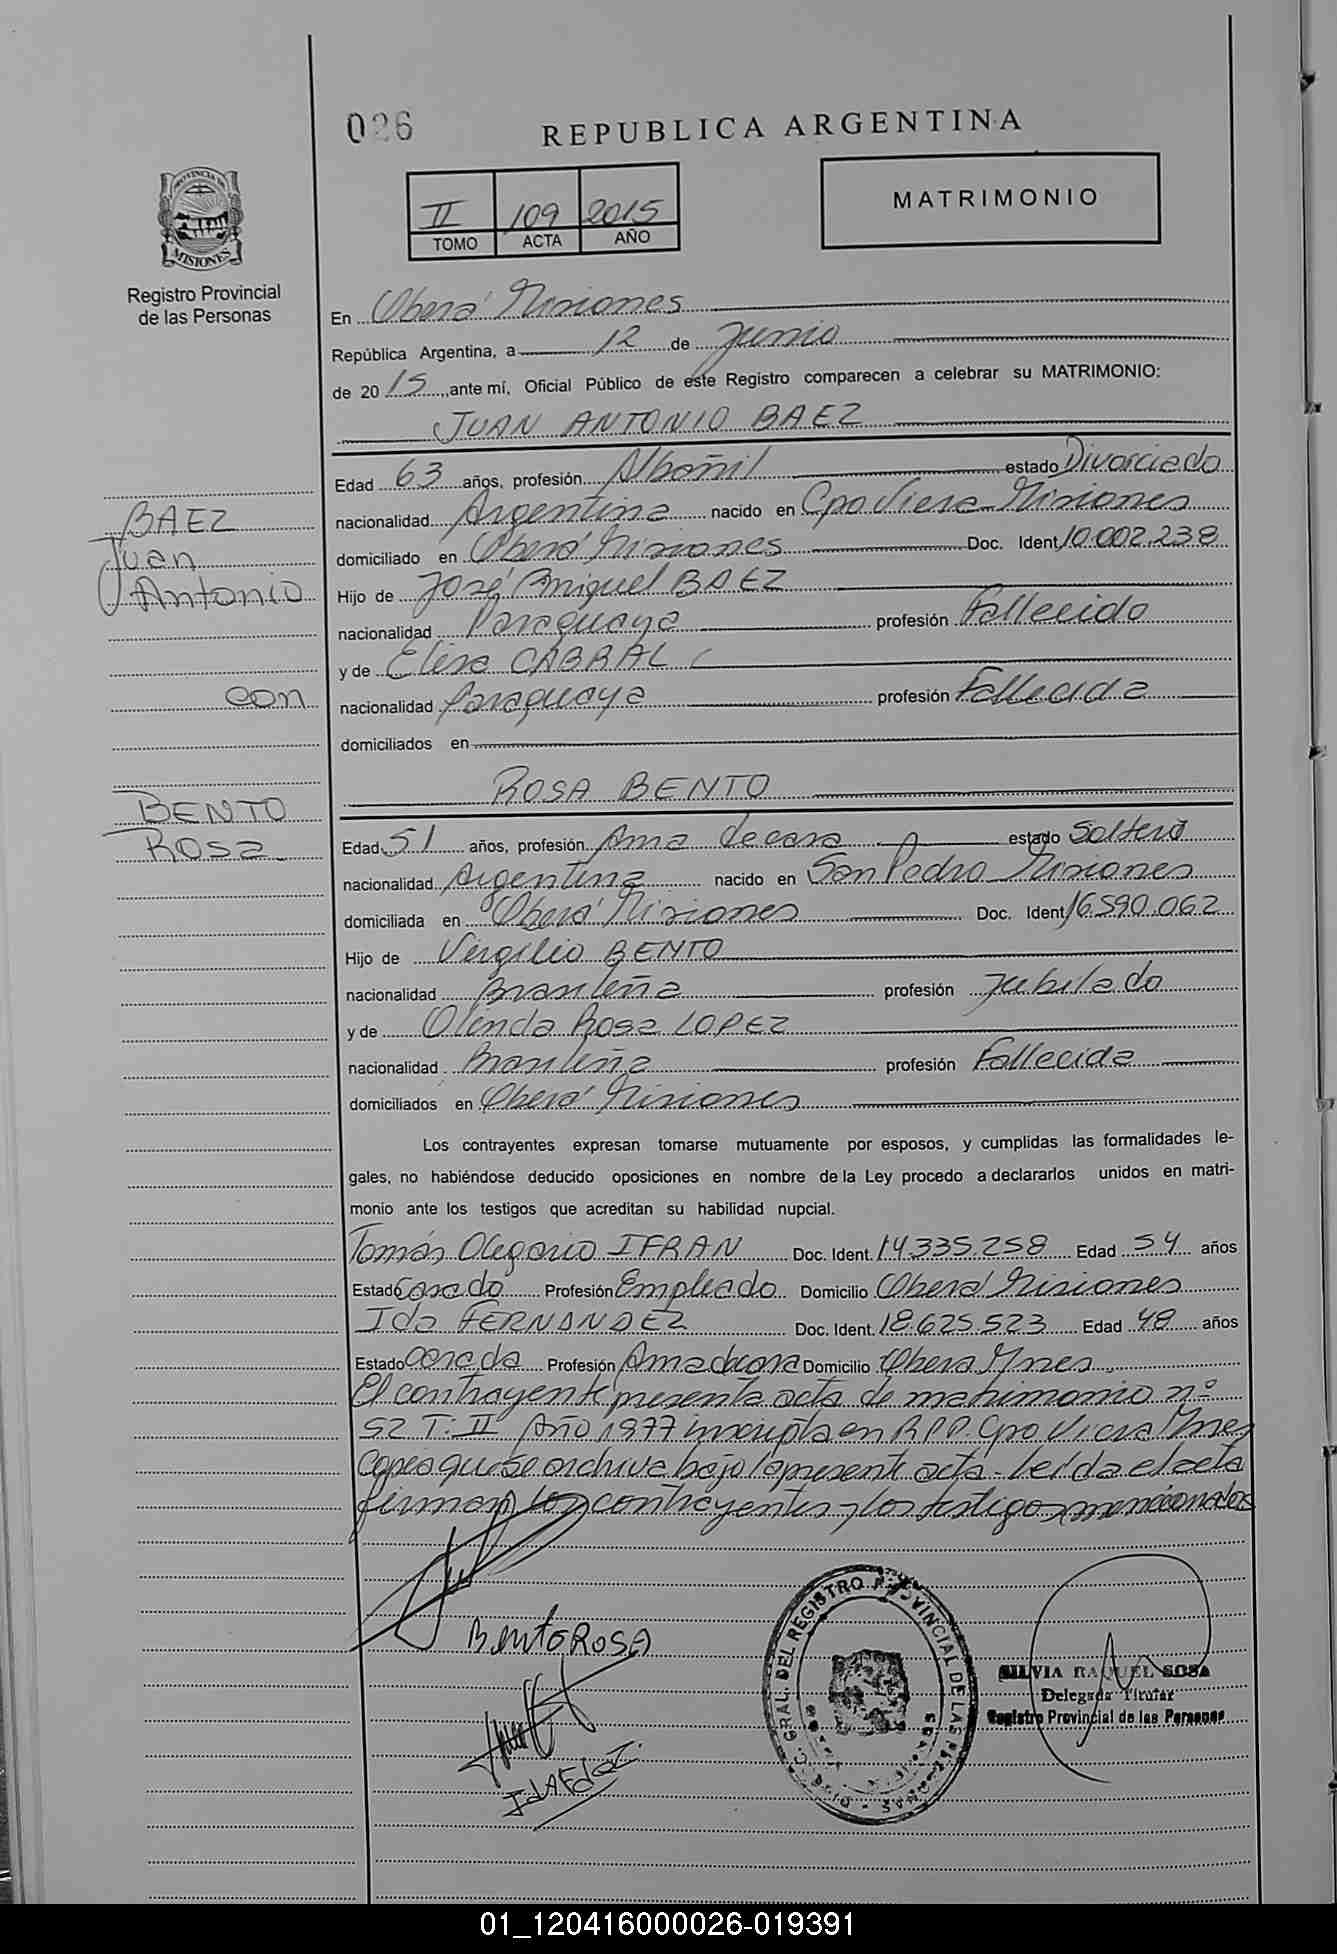 026
REPUBLICA ARGENTINA
II 109 2015
TOMO ACTA AÑO
MATRIMONIO
PROVINCIA DE
MISIONES
Registro Provincial
de las Personas
En Oberá Misiones
República Argentina, a 12 de Junio
de 2015, ante mí, Oficial Público de este Registro comparecen a celebrar su MATRIMONIO:
JUAN ANTONIO BAEZ
Edad 63 años, profesión Albañil estado Divorciado
nacionalidad Argentina nacido en Cpo Viera Misiones
domiciliado en Oberá Misiones Doc. Ident 10.002.238
Hijo de José Miguel BAEZ
nacionalidad Paraguaya profesión Fallecido
y de Elisa CABRAL
nacionalidad Paraguaya profesión Fallecida
domiciliados en
BAEZ
Juan
Antonio
con
BENTO
Rosa
ROSA BENTO
Edad 51 años, profesión Ama de casa estado Soltera
nacionalidad Argentina nacido en San Pedro Misiones
domiciliada en Oberá Misiones Doc. Ident 16.590.062
Hijo de Virgilio BENTO
nacionalidad Brasileña profesión Jubilado
y de Olinda Rosa LOPEZ
nacionalidad Brasileña profesión Fallecida
domiciliados en Oberá Misiones
Los contrayentes expresan tomarse mutuamente por esposos, y cumplidas las formalidades le-
gales, no habiéndose deducido oposiciones en nombre de la Ley procedo a declararlos unidos en matri-
monio ante los testigos que acreditan su habilidad nupcial.
Tomás Olegario IFRAN Doc. Ident. 14.335.258 Edad 54 años
Estado Casado Profesión Empleado Domicilio Oberá Misiones
Ida FERNANDEZ Doc. Ident. 18.625.523 Edad 48 años
Estado Casada Profesión Ama de casa Domicilio Oberá Mnes
El contrayente presenta acta de matrimonio nº
52 T: II Año 1977 inscripta en R.P.P. Cpo Viera Mnes
Copia que se archiva bajo la presente acta - Leída el acta
firman los contrayentes y los testigos mencionados
Bento ROSA
IdA Fdez.
DIREC. GRAL. DEL REGISTRO PROVINCIAL DE LAS PERSONAS
SILVIA RAQUEL SOSA
Delegada Titular
Registro Provincial de las Personas
01_120416000026-019391